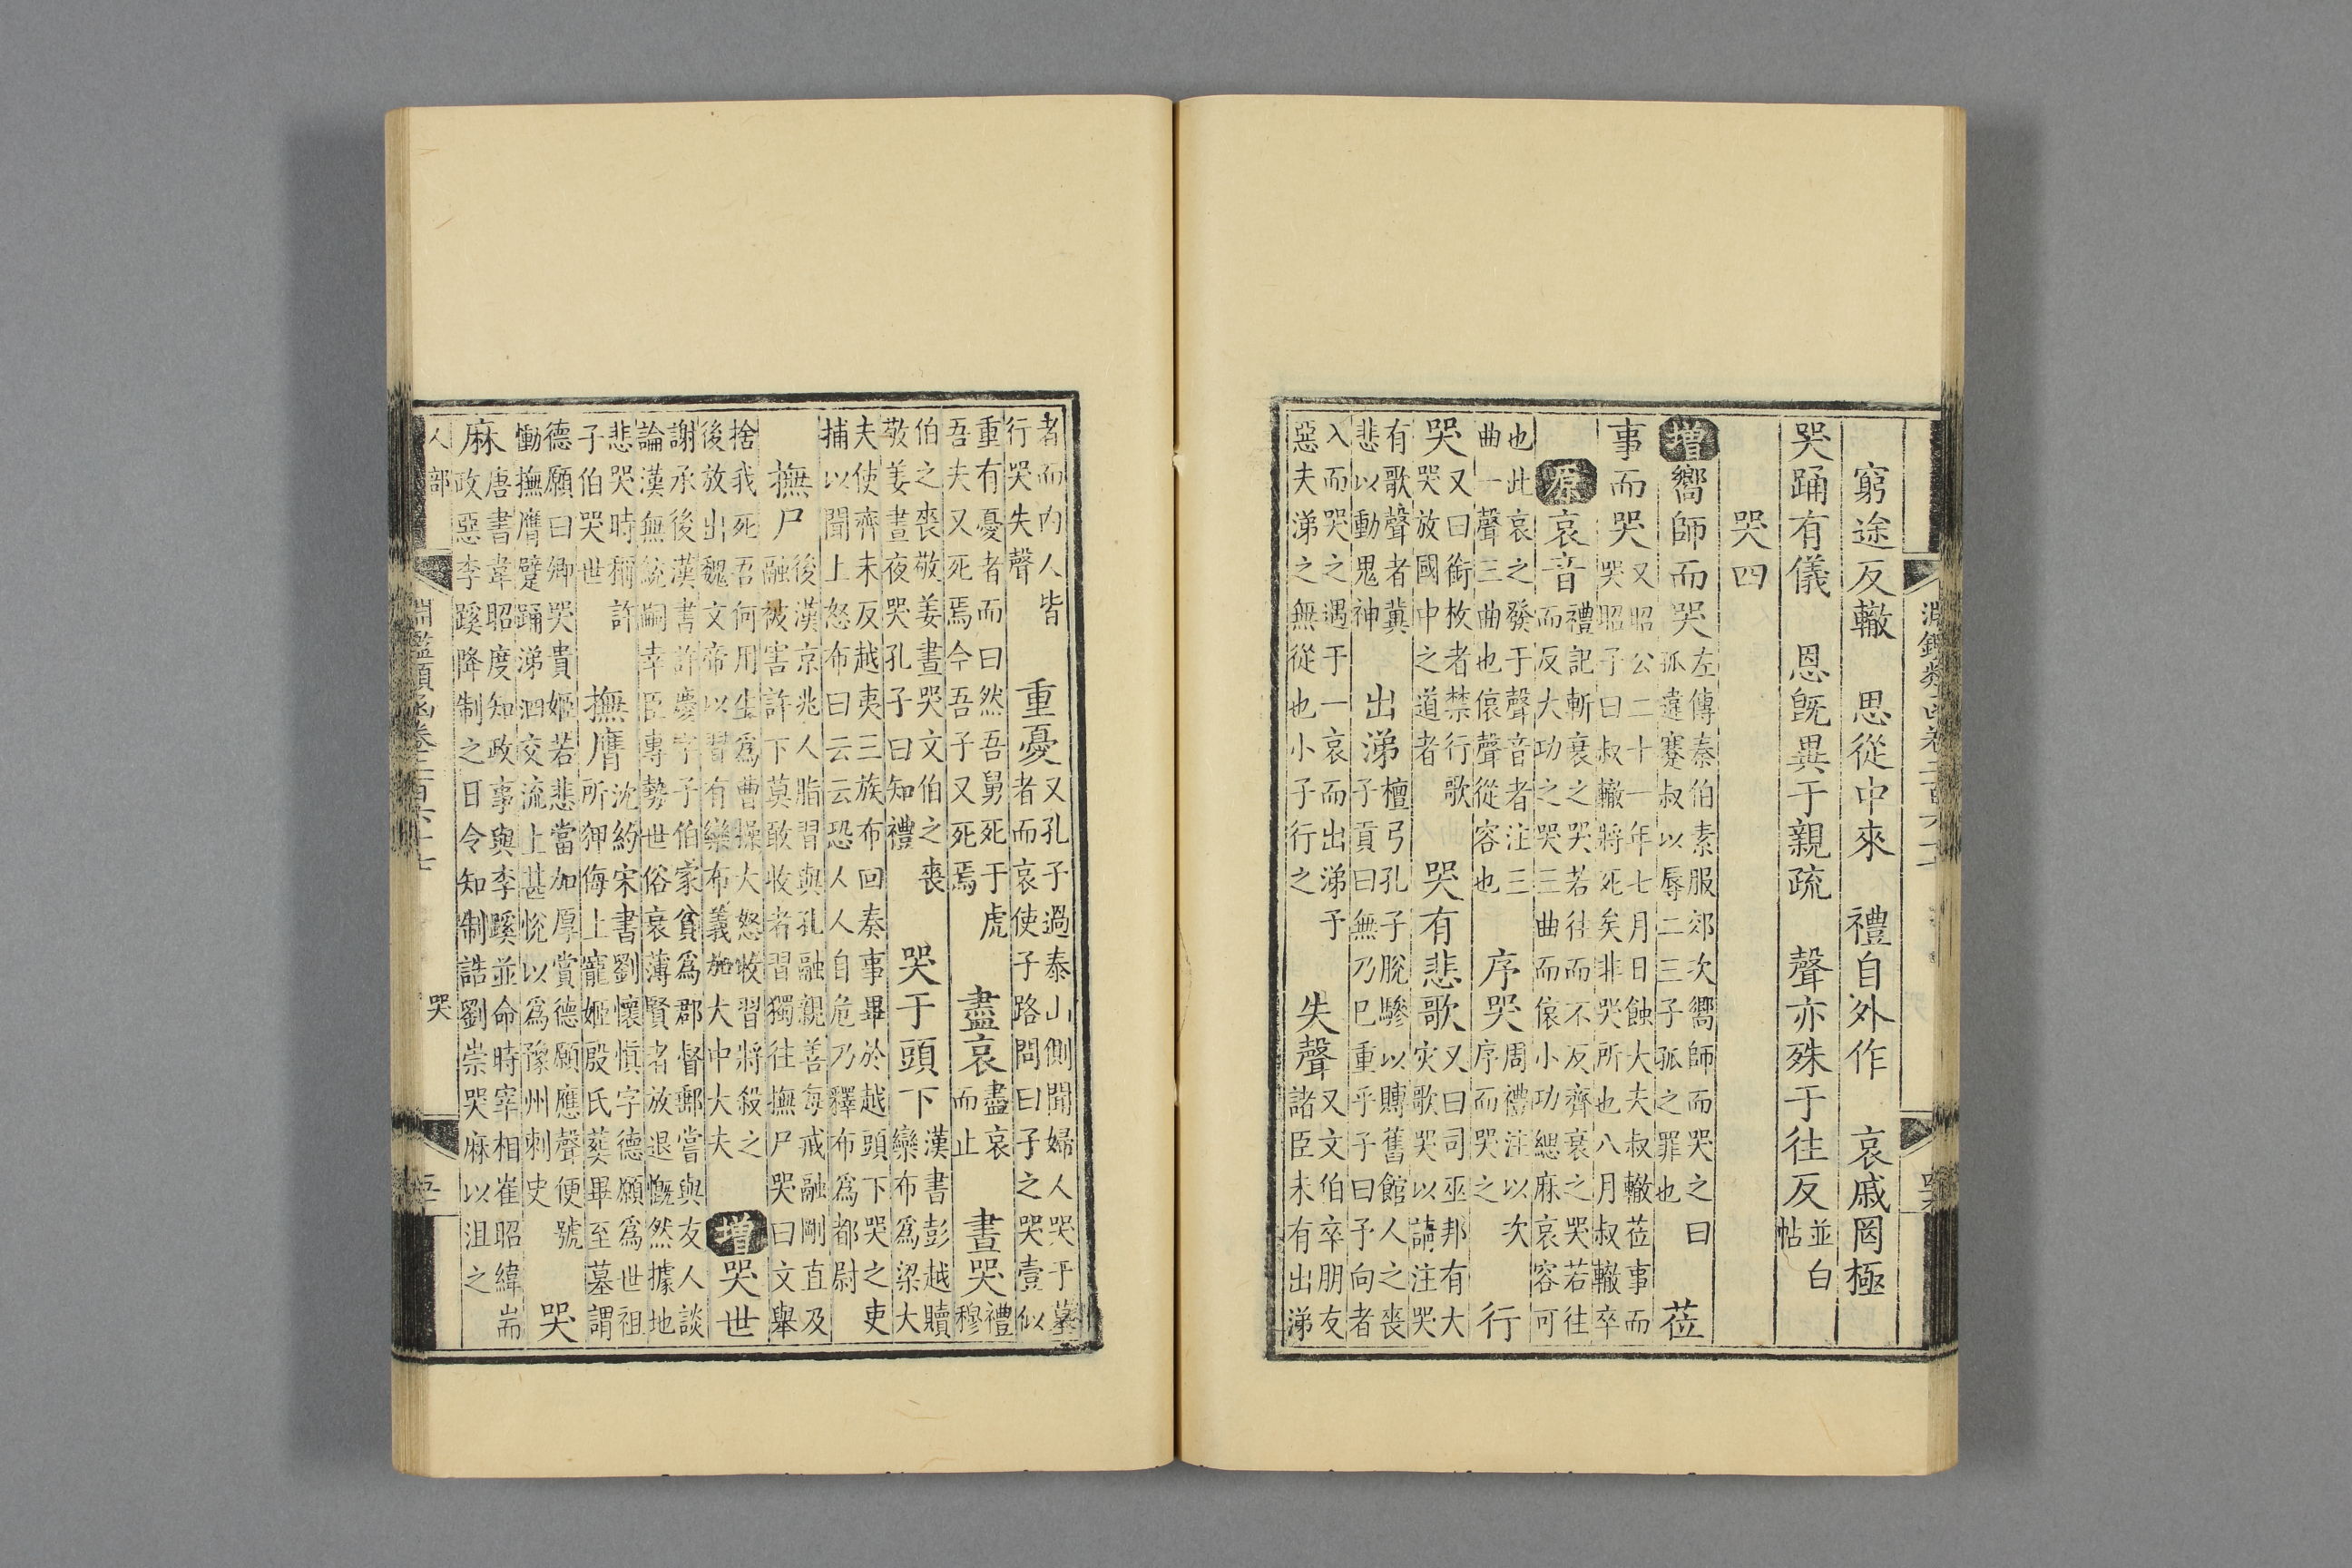 窮途反轍　思從中來　禮自外作　哀戚罔極
哭踊有儀　恩旣異于親疏　聲亦殊于往反並白帖
哭四
增嚮師而哭左傳秦伯素服郊次嚮師而哭之曰孤違蹇叔以辱二三子孤之罪也　莅
事而哭又昭公二十一年七月日蝕大夫叔轍莅事而哭昭子曰叔轍將死矣非哭所也八月叔轍卒
原哀音禮記斬衰之哭若往而不反齊衰之哭若往而反大功之哭三曲而偯小功緦麻哀容可
也此哀之發于聲音者注三曲一聲三曲也偯聲從容也　序哭周禮注以次序而哭之　行
哭又曰銜枚者禁行歌哭放國中之道者　哭有悲歌又曰司巫邦有大灾歌哭以請注哭
有歌聲者冀悲以動鬼神　出涕檀弓孔子脫驂以賻舊館人之喪子貢曰無乃已重乎子曰予向者
入而哭之遇于一哀而出涕予惡夫涕之無從也小子行之　失聲又文伯卒朋友諸臣未有出涕
者而內人皆行哭失聲　重憂又孔子過泰山側聞婦人哭于墓者而哀使子路問曰子之哭壹似
重有憂者而曰然吾舅死于虎吾夫又死焉今吾子又死焉　盡哀盡哀而止　晝哭禮穆
伯之喪敬姜晝哭文伯之喪敬姜晝夜哭孔子曰知禮　哭于頭下漢書彭越贖欒布爲梁大
夫使齊未反越夷三族布回奏事畢於越頭下哭之吏捕以聞上怒布曰云云恐人人自危乃釋布爲都尉
撫尸後漢京兆人脂習與孔融親善每戒融剛直及融被害許下莫敢收者習獨往撫尸哭曰文舉
捨我死吾何用生爲曹操大怒收習將殺之後放出魏文帝以習有欒布義加大中大夫　增哭世
謝承後漢書許慶字子伯家貧爲郡督郵嘗與友人談論漢無統嗣幸臣專勢世俗衰薄賢者放退慨然據地
悲哭時稱許子伯哭世　撫膺沈約宋書劉懷愼字德願爲世祖所狎侮上寵姬殷氏葬畢至墓謂
德願曰卿哭貴姬若悲當加厚賞德願應聲便號慟撫膺躄踊涕泗交流上甚悅以爲豫州刺史　哭
麻唐書韋昭度知政事與李蹊並命時宰相崔昭緯耑政惡李蹊降制之日令知制誥劉崇哭麻以沮之
人部　淵鑑類函卷二百六十七　哭